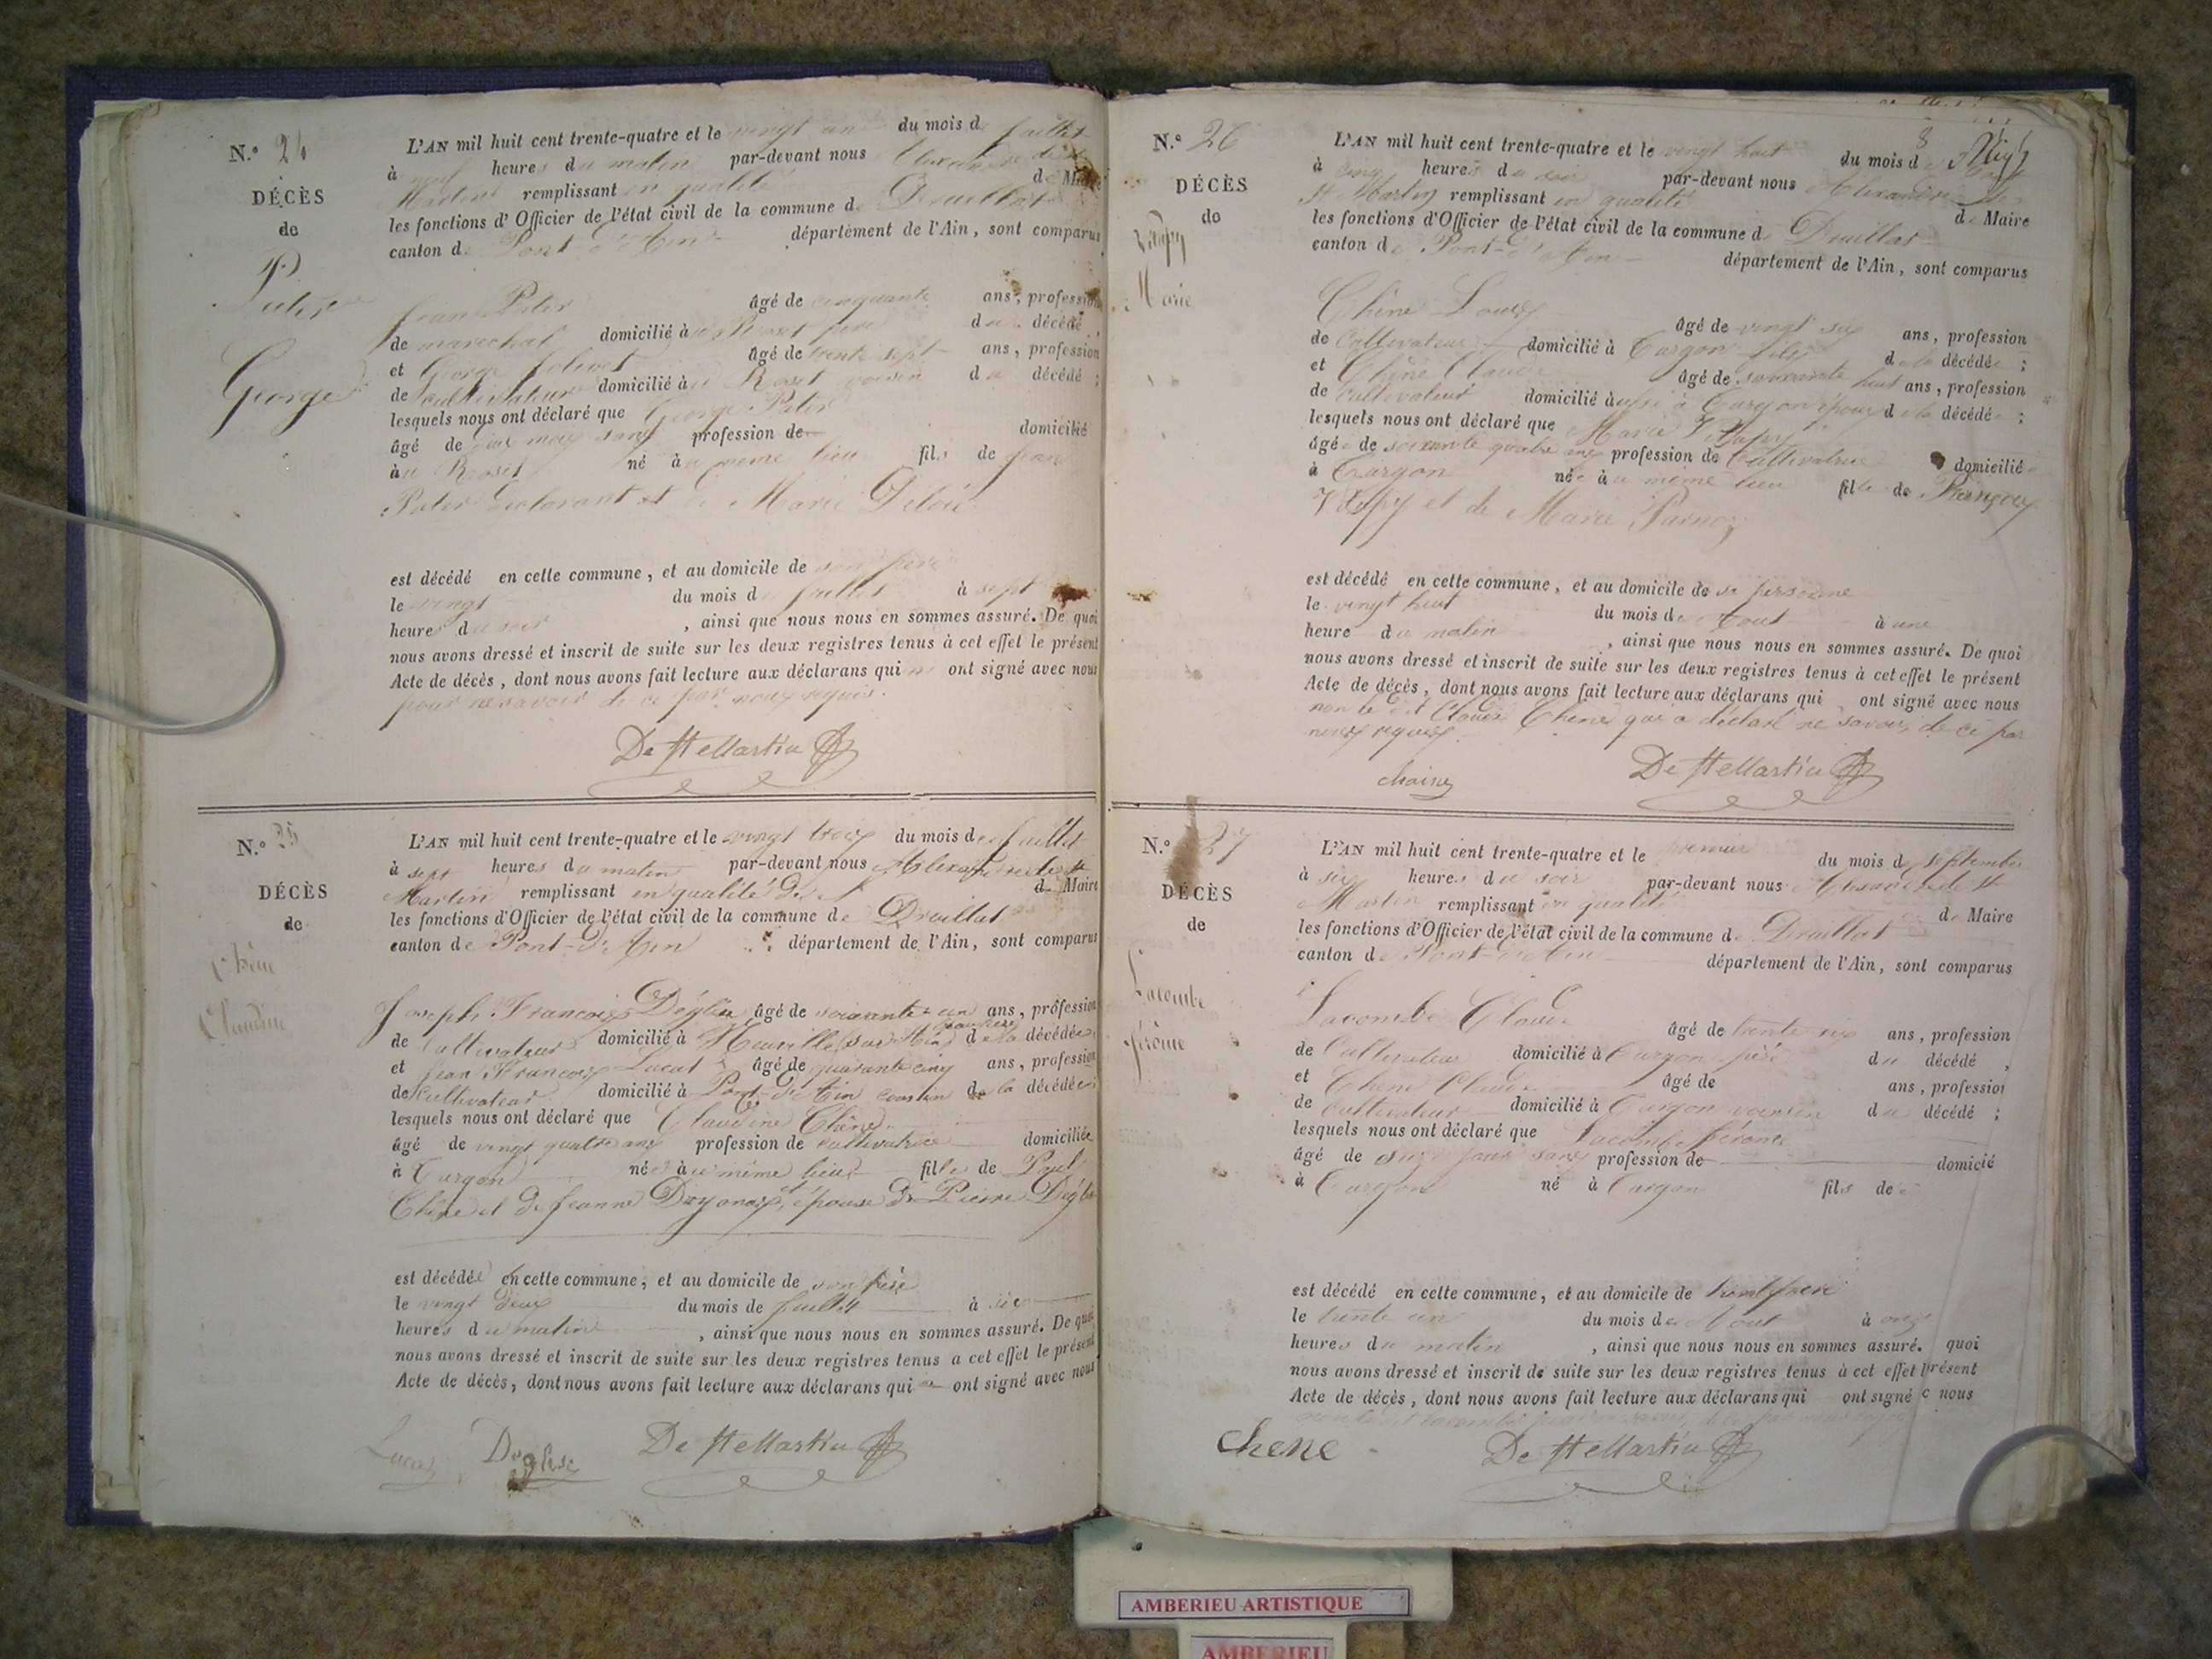 N.° 24
DÉCÈS
de
Pater
George
L'AN mil huit cent trente-quatre et le vingt un du mois de juillet
à neuf heures du matin par-devant nous Alexandre de St
Martin remplissant en qualité de Maire
les fonctions d'Officier de l'état civil de la commune de Druillat
canton de Pont-d'Ain département de l'Ain, sont comparus
Jean Pater âgé de cinquante ans, profession
de marechal domicilié au Roset père du décédé,
et George Jolivet âgé de trente sept ans, profession
de Cultivateur domicilié au Roset voisin du décédé;
lesquels nous ont déclaré que George Pater
âgé de mois sans profession de domicilié
au Roset né au même lieu fils de Jean
Pater declarant et de Marie
est décédé en cette commune, et au domicile de son père
le vingt du mois de juillet à sept
heures du soir, ainsi que nous nous en sommes assuré. De quoi
nous avons dressé et inscrit de suite sur les deux registres tenus à cet effet le présent
Acte de décès, dont nous avons fait lecture aux déclarans qui n' ont signé avec nous
pour ne savoir de ce par nous requis.
De St Martin
N.° 25
DÉCÈS
de
Chêne
Claudine
L'AN mil huit cent trente-quatre et le vingt trois du mois de juillet
à sept heures du matin par-devant nous Alexandre de St
Martin remplissant en qualité de Maire
les fonctions d'Officier de l'état civil de la commune de Druillat
canton de Pont-d'Ain département de l'Ain, sont comparus
Joseph François Déglise âgé de soixante un ans, profession
de Cultivateur domicilié à Neuville sur Ain beau père de la décédée
et Jean François Lucat âgé de quarante cinq ans, profession
de Cultivateur domicilié à Pont-d'Ain cousin de la décédée
lesquels nous ont déclaré que Claudine Chêne
âgé de vingt quatre ans profession de cultivatrice domiciliée
à Turgon née au même lieu fille de Paul
Chêne et de Jeanne Doyonax, et épouse de Pierre Déglise
est décédée en cette commune, et au domicile de son père
le vingt deux du mois de juillet à six
heures du matin, ainsi que nous nous en sommes assuré. De quoi
nous avons dressé et inscrit de suite sur les deux registres tenus a cet effet le présent
Acte de décès, dont nous avons fait lecture aux déclarans qui ont signé avec nous
Lucas Deglise De St Martin
N.° 26
DÉCÈS
de
Marie
L'AN mil huit cent trente-quatre et le vingt huit du mois d'Août
8
à cinq heures du soir par-devant nous Alexandre de
St Martin remplissant en qualité de Maire
les fonctions d'Officier de l'état civil de la commune de Druillat
canton de Pont-d'Ain département de l'Ain, sont comparus
Chêne Louis âgé de vingt six ans, profession
de Cultivateur domicilié à Turgon fils de la décédée;
et Chêne Claude âgé de soixante huit ans, profession
de Cultivateur domicilié aussi à Turgon époux de la décédée;
lesquels nous ont déclaré que Marie
âgée de soixante quatre ans profession de Cultivatrice domicilié
à Turgon née au même lieu fille de François
et de Marie
est décédé en cette commune, et au domicile de sa personne
le vingt huit du mois de Aout à une
heure du matin, ainsi que nous nous en sommes assuré. De quoi
nous avons dressé et inscrit de suite sur les deux registres tenus à cet effet le présent
Acte de décès, dont nous avons fait lecture aux déclarans qui ont signé avec nous
non le dit Claude Chêne qui a déclaré ne savoir, de ce par
nous requis
chaine De St Martin
N.° 27
DÉCÈS
de
Lacombe
Jérôme
L'AN mil huit cent trente-quatre et le premier du mois de septembre
à six heures du soir par-devant nous Alexandre de St
Martin remplissant en qualité de Maire
les fonctions d'Officier de l'état civil de la commune de Druillat
canton de Pont-d'Ain département de l'Ain, sont comparus
Lacombe Claude âgé de trente six ans, profession
de Cultivateur domicilié à Turgon père du décédé,
et Chêne Claude âgé de ans, profession
de Cultivateur domicilié à Turgon voisin du décédé;
lesquels nous ont déclaré que Lacombe Jérôme
âgé de jours sans profession de domicié
à Turgon né à Turgon fils de
est décédé en cette commune, et au domicile de
le trente un du mois de Aout à onze
heures du matin, ainsi que nous nous en sommes assuré. quoi
nous avons dressé et inscrit de suite sur les deux registres tenus à cet effet présent
Acte de décès, dont nous avons fait lecture aux déclarans qui ont signé c nous
chene De St Martin
AMBERIEU ARTISTIQUE
AMBERIEU